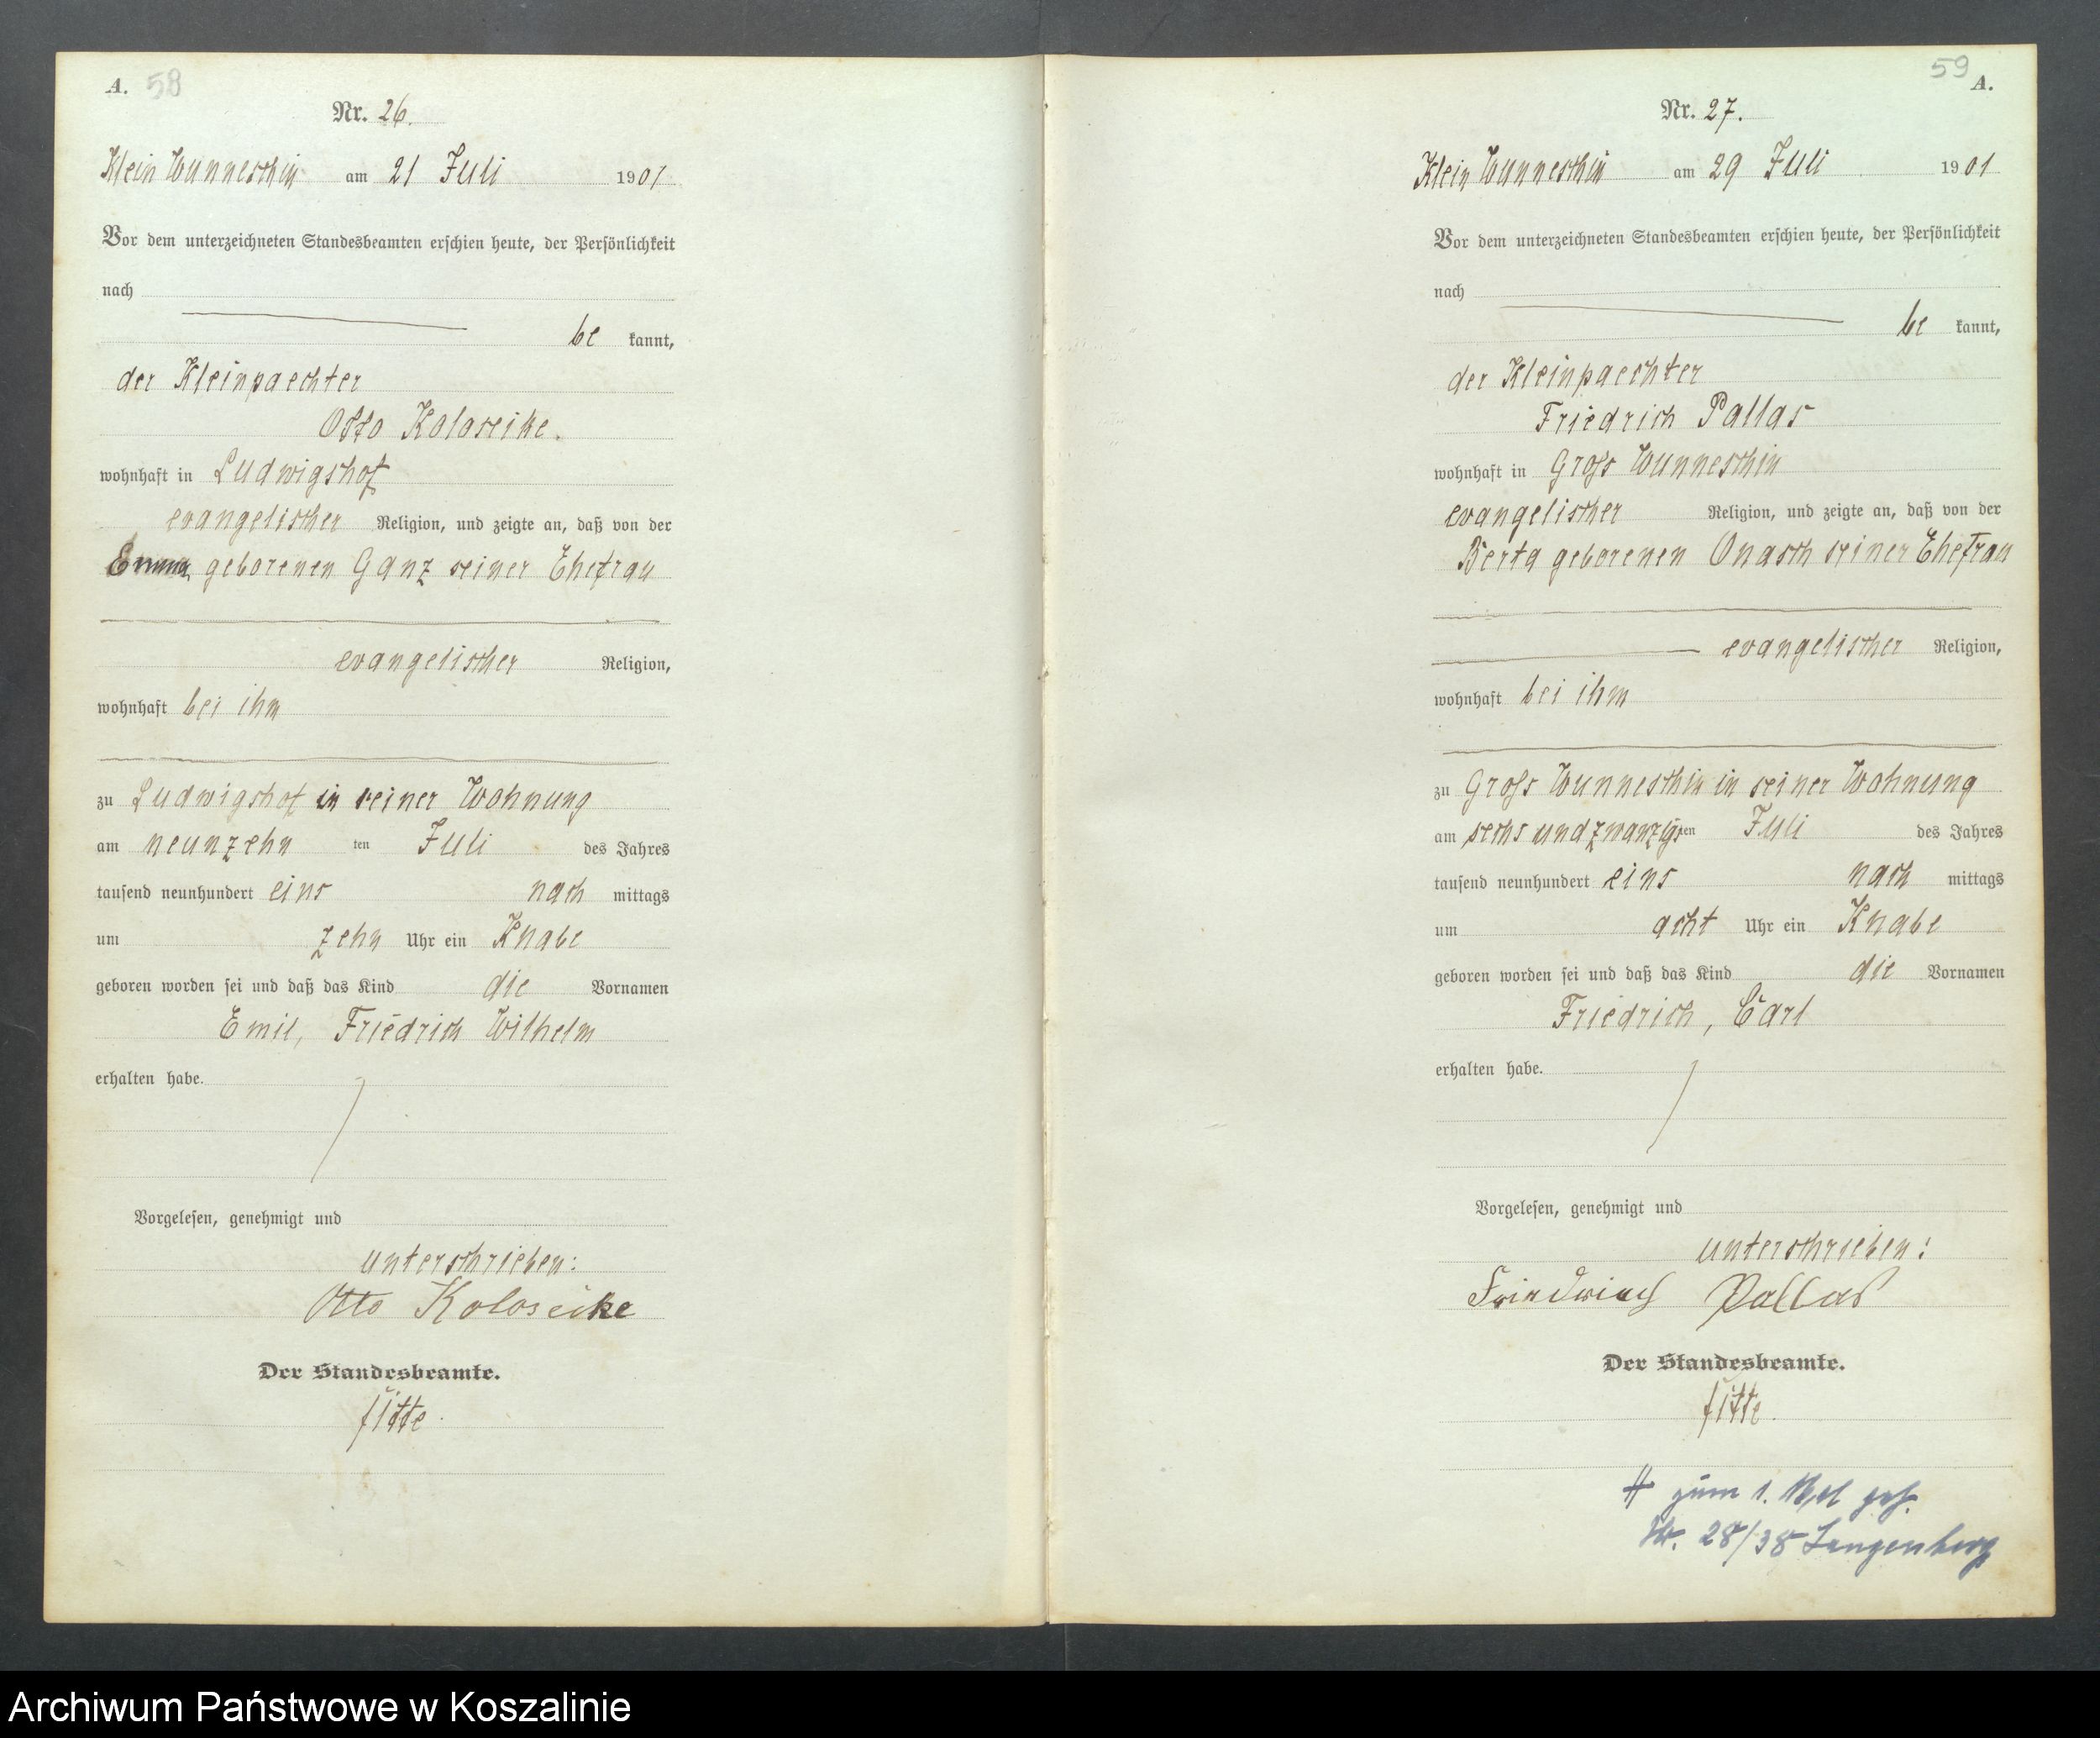 A. 58
Nr. 26.
Klein Wunneschin am 21 Juli 1901
Vor dem unterzeichneten Standesbeamten erschien heute, der Persönlichkeit
nach
be kannt,
der Kleinpaechter
Otto Koloseike.
wohnhaft in Ludwigshof
evangelischer Religion, und zeigte an, daß von der
Emma geborenen Ganz seiner Ehefrau
evangelischer Religion,
wohnhaft bei ihm
zu Ludwigshof in seiner Wohnung
am neunzehn ten Juli des Jahres
tausend neunhundert eins nach mittags
um zehn Uhr ein Knabe
geboren worden sei und daß das Kind die Vornamen
Emil, Friedrich Wilhelm
erhalten habe.
Vorgelesen, genehmigt und
unterschrieben:
Otto Koloseike
Der Standesbeamte.
59 A.
Nr. 27.
Klein Wunneschin am 29 Juli 1901
Vor dem unterzeichneten Standesbeamten erschien heute, der Persönlichkeit
nach
be kannt,
der Kleinpaechter
Friedrich Pallas
wohnhaft in Groß Wunneschin
evangelischer Religion, und zeigte an, daß von der
Berta geborenen Onasch seiner Ehefrau
evangelischer Religion,
wohnhaft bei ihm
zu Groß Wunneschin in seiner Wohnung
am sechs und zwanzigsten Juli des Jahres
tausend neunhundert eins nach mittags
um acht Uhr ein Knabe
geboren worden sei und daß das Kind die Vornamen
Friedrich, Carl
erhalten habe.
Vorgelesen, genehmigt und
unterschrieben:
Friedrich Pallas
Der Standesbeamte.
zum 1. Mal
Nr. 28/38 Langenberg
Archiwum Państwowe w Koszalinie